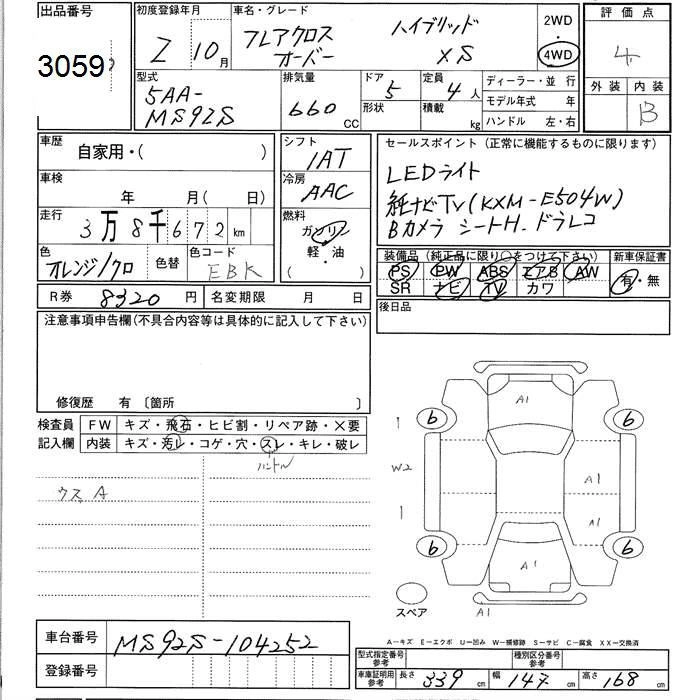 出品番号
3059
初度登録年月 車名・グレード
2 10月 フレアクロスオーバー ハイブリッド XS
2WD
4WD
評価点
4
外装 内装
B
型式
5AA-
MS92S
排気量
660 CC
ドア
5
形状
定員
4 人
積載 kg
ディーラー・並行
モデル年式 年
ハンドル 左・右
車歴
自家用・( )
車検
年 月( 日)
走行
3万8千672 km
色
オレンジ/クロ
色替
色コード
EBK
シフト
IAT
冷房
AAC
燃料
ガソリン
軽・油
( )
セールスポイント (正常に機能するものに限ります)
LEDライト
純ナビTV(KXM-E504W)
Bカメラ シートH. ドラレコ
装備品 (純正品に限り○をつけて下さい)
PS PW ABS エアB AW
SR ナビ TV カワ
新車保証書
有・無
R券 8320 円 名変期限 月 日
後日品
注意事項申告欄(不具合内容等は具体的に記入して下さい)
修復歴 有 〔箇所 〕
検査員 FW キズ・飛石・ヒビ割・リペア跡・×要
記入欄 内装 キズ・汚レ・コゲ・穴・スレ・キレ・破レ
ハンドル
ウス A
A1
1
6 6
W2
A1
1
A1
6 6
A1
スペア
A1
A-キズ E-エクボ U-凹み W-補修跡 S-サビ C-腐食 XX-交換済
車台番号 MS92S-104252
登録番号
型式指定番号 参考
種別区分番号 参考
車庫証明用 参考 長さ 339 cm 幅 147 cm 高さ 168 cm